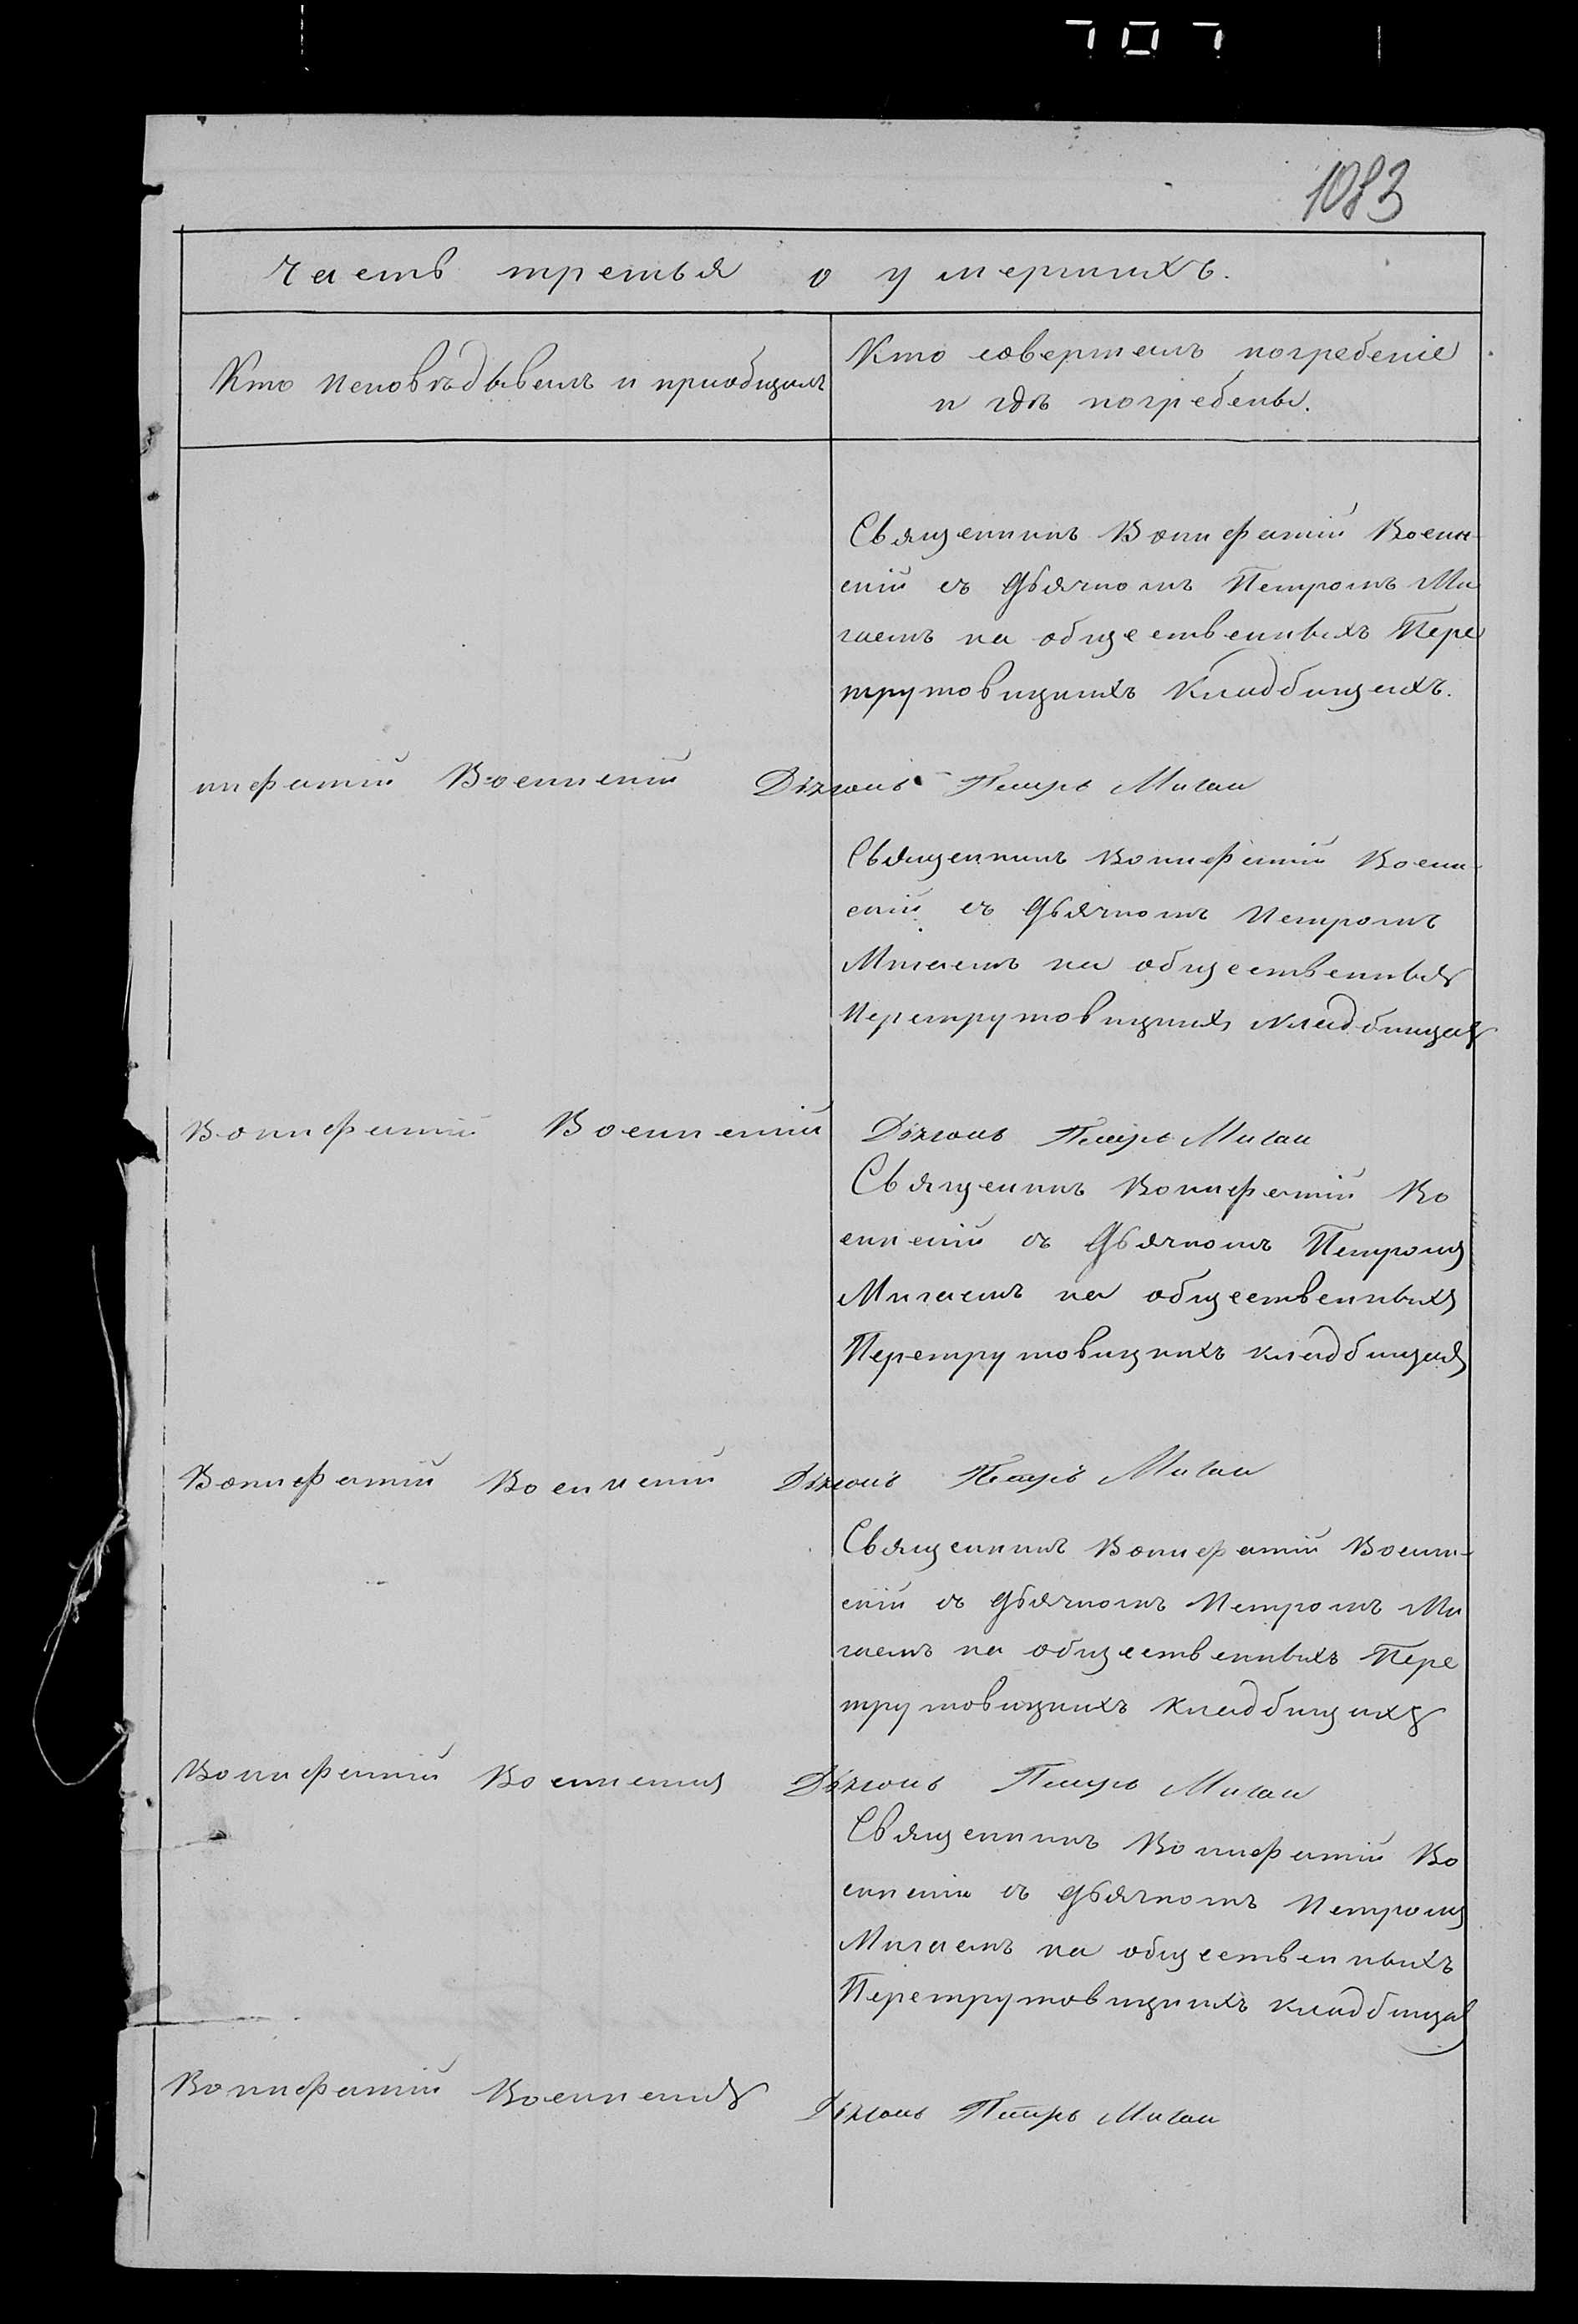 707
1083
Часть третья о умершихъ.
Кто исповѣдывалъ и приобщалъ
Кто совершалъ погребеніе
и гдѣ погребены.
Священникъ Вонифатій Воин-
скій съ Дьячкомъ Петромъ Ми
гаемъ на общественныхъ Пере
трутовицкихъ Кладбищахъ.
нифатій Воинскій Дьячокъ Петръ Мигай
Священникъ Вонифатій Воин-
скій съ Дьячкомъ Петромъ
Мигаемъ на общественных
Перетрутовицких кладбищах
Вонифатій Воинскій Дьячокъ Петръ Мигай
Священникъ Вонифатій Во
инскій съ Дьячкомъ Петромъ
Мигаемъ на общественныхъ
Перетрутовицкихъ кладбищах
Вонифатій Воинскій Дьячокъ Петръ Мигай
Священникъ Вонифатій Воин-
скій съ Дьячкомъ Петромъ Ми
гаемъ на общественныхъ Пере
трутовицкихъ кладбищахъ
Вонифатій Воинскій Дьячокъ Петръ Мигай
Священникъ Вонифатій Во
инскій съ дьячкомъ Петромъ
Мигаемъ на общественныхъ
Перетрутовицкихъ кладбищах
Вонифатій Воинскій Дьячокъ Петръ Мигай